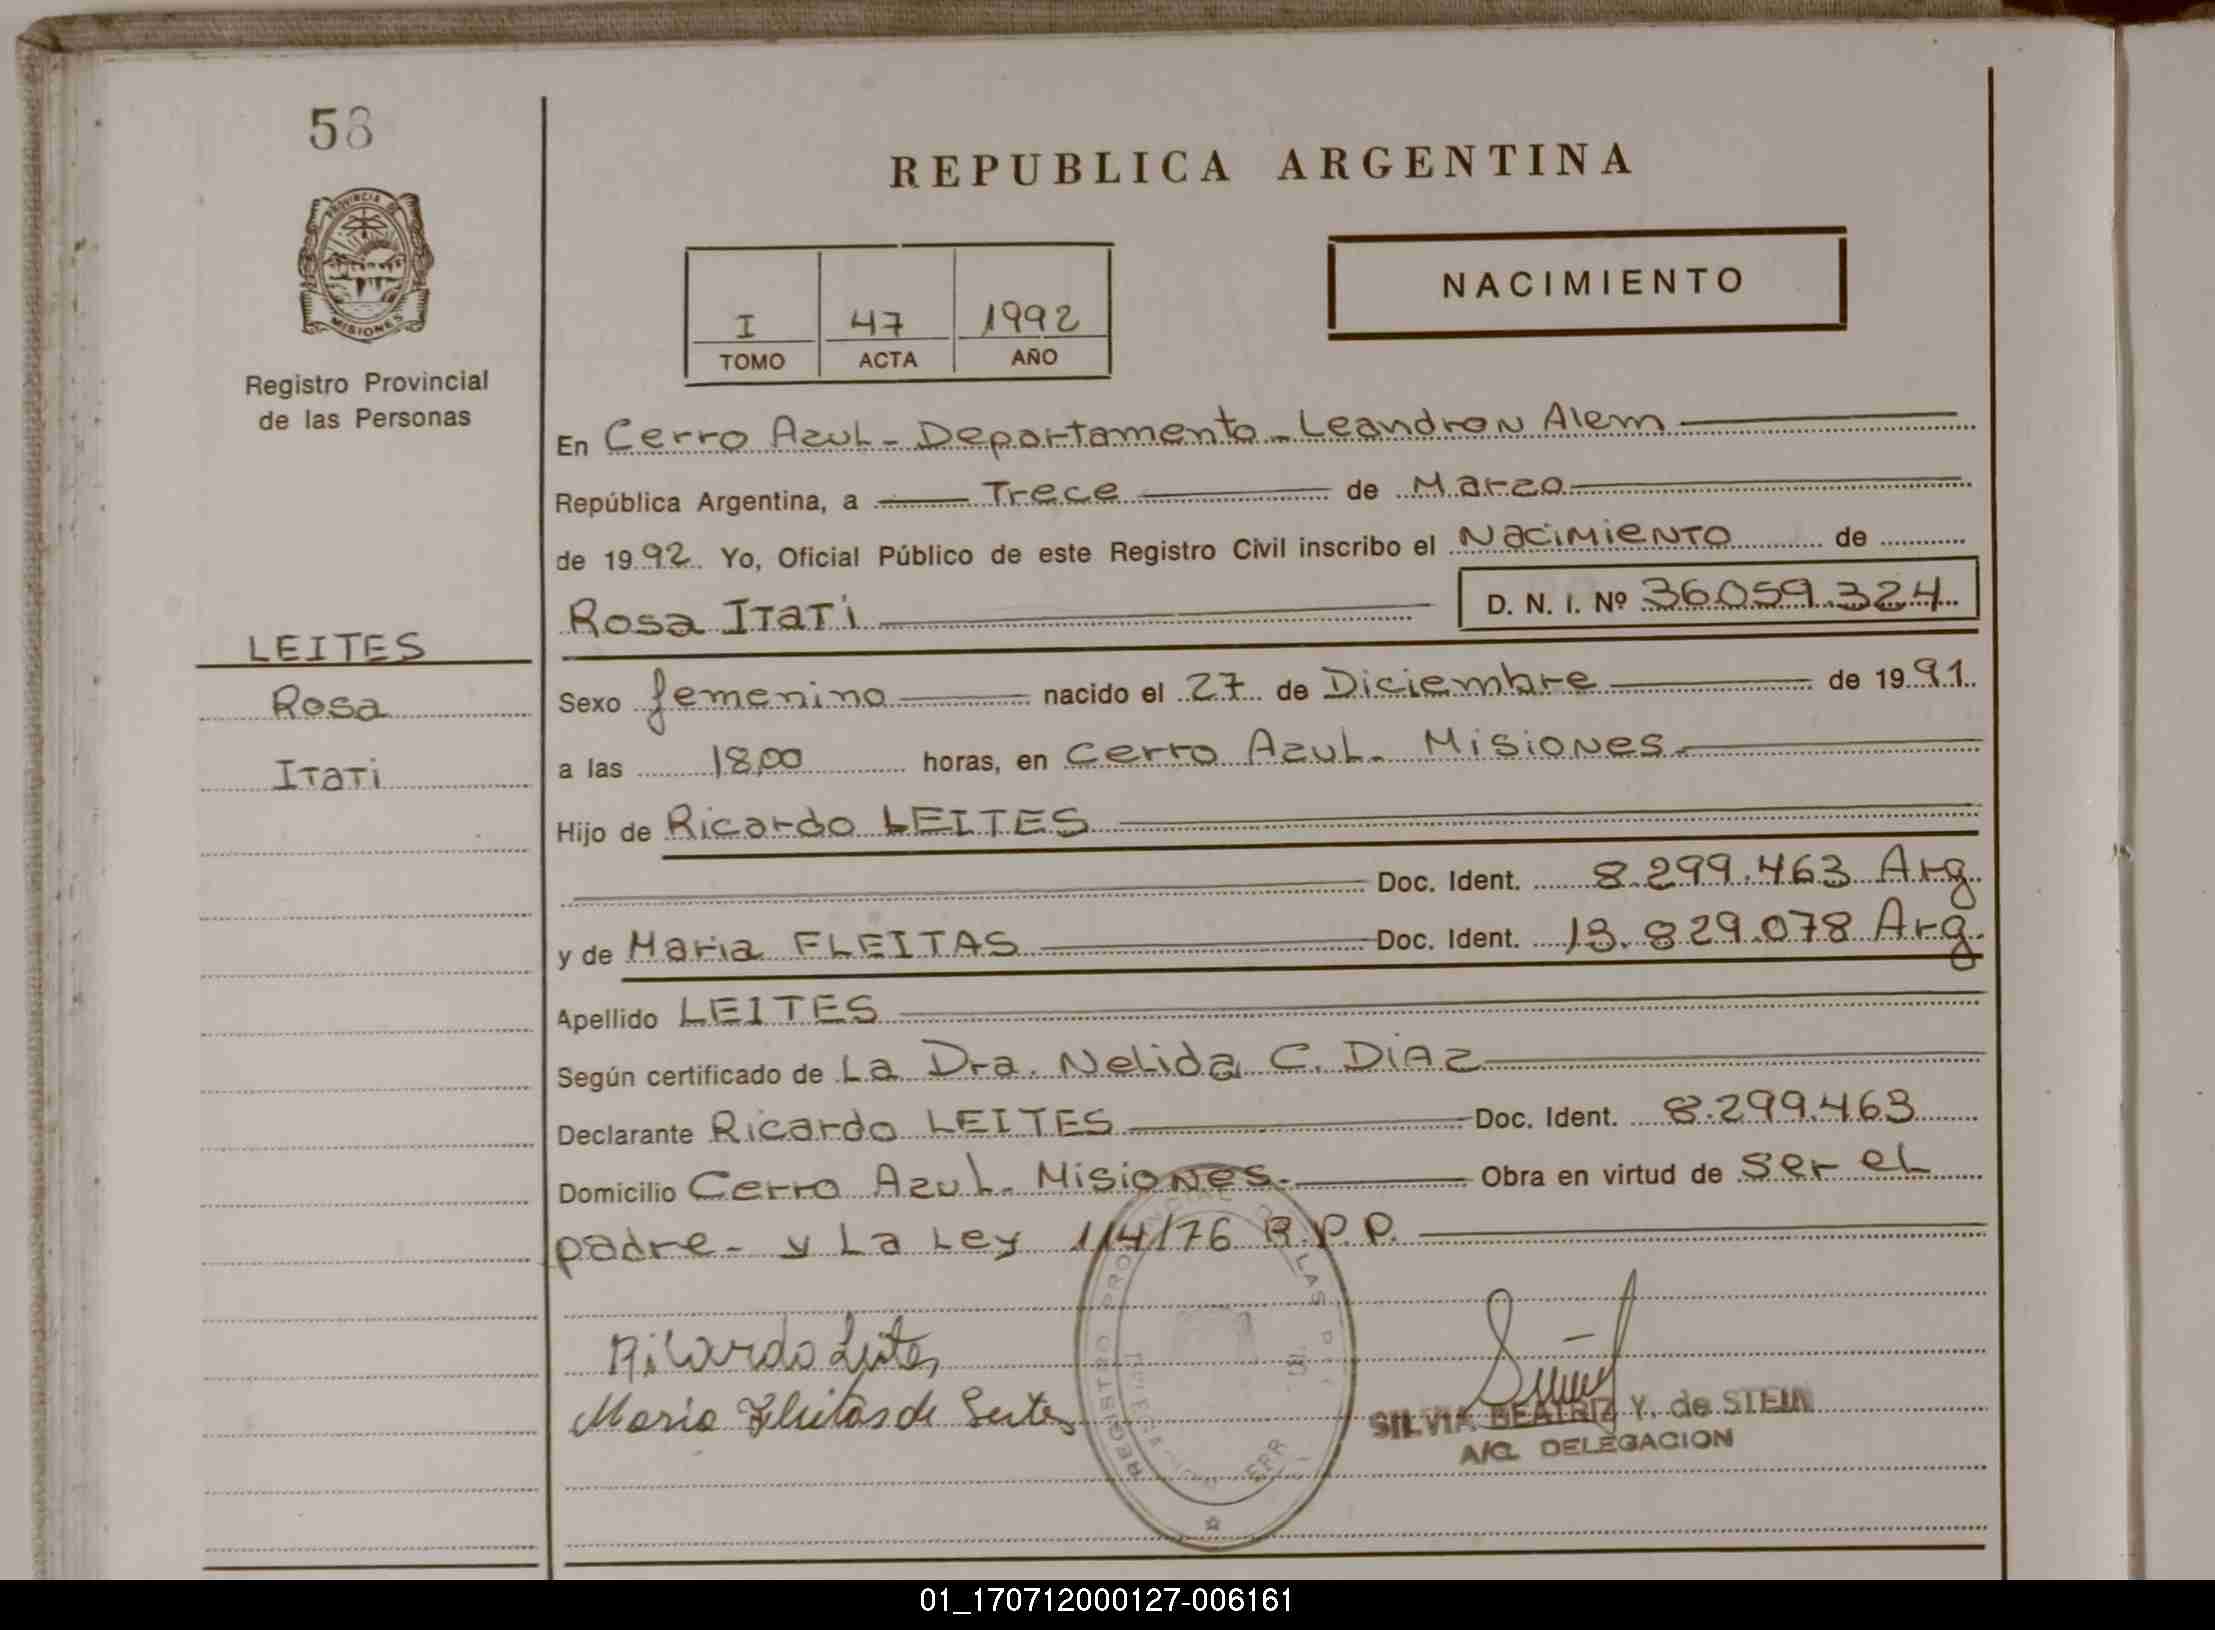 58
PROVINCIA DE
MISIONES
Registro Provincial
de las Personas
LEITES
Rosa
Itati
REPUBLICA ARGENTINA
I 47 1992
TOMO ACTA AÑO
NACIMIENTO
En Cerro Azul - Departamento - Leandro N Alem
República Argentina, a Trece de Marzo
de 1992. Yo, Oficial Público de este Registro Civil inscribo el Nacimiento de
Rosa Itati D. N. I. Nº 36059.324
Sexo femenino nacido el 27 de Diciembre de 1991.
a las 18,00 horas, en Cerro Azul - Misiones
Hijo de Ricardo LEITES
Doc. Ident. 8.299.463 Arg.
y de Maria FLEITAS Doc. Ident. 13.829.078 Arg.
Apellido LEITES
Según certificado de La Dra. Nelida C. Diaz
Declarante Ricardo LEITES Doc. Ident. 8.299.463
Domicilio Cerro Azul - Misiones. Obra en virtud de ser el
padre - y La Ley 1/4/76 R.P.P.
Ricardo Leites
Maria Fleitas de Leites
REGISTRO PROVINCIAL DE LAS
SILVIA BEATRIZ Y. de STEIN
A/C. DELEGACION
01_170712000127-006161